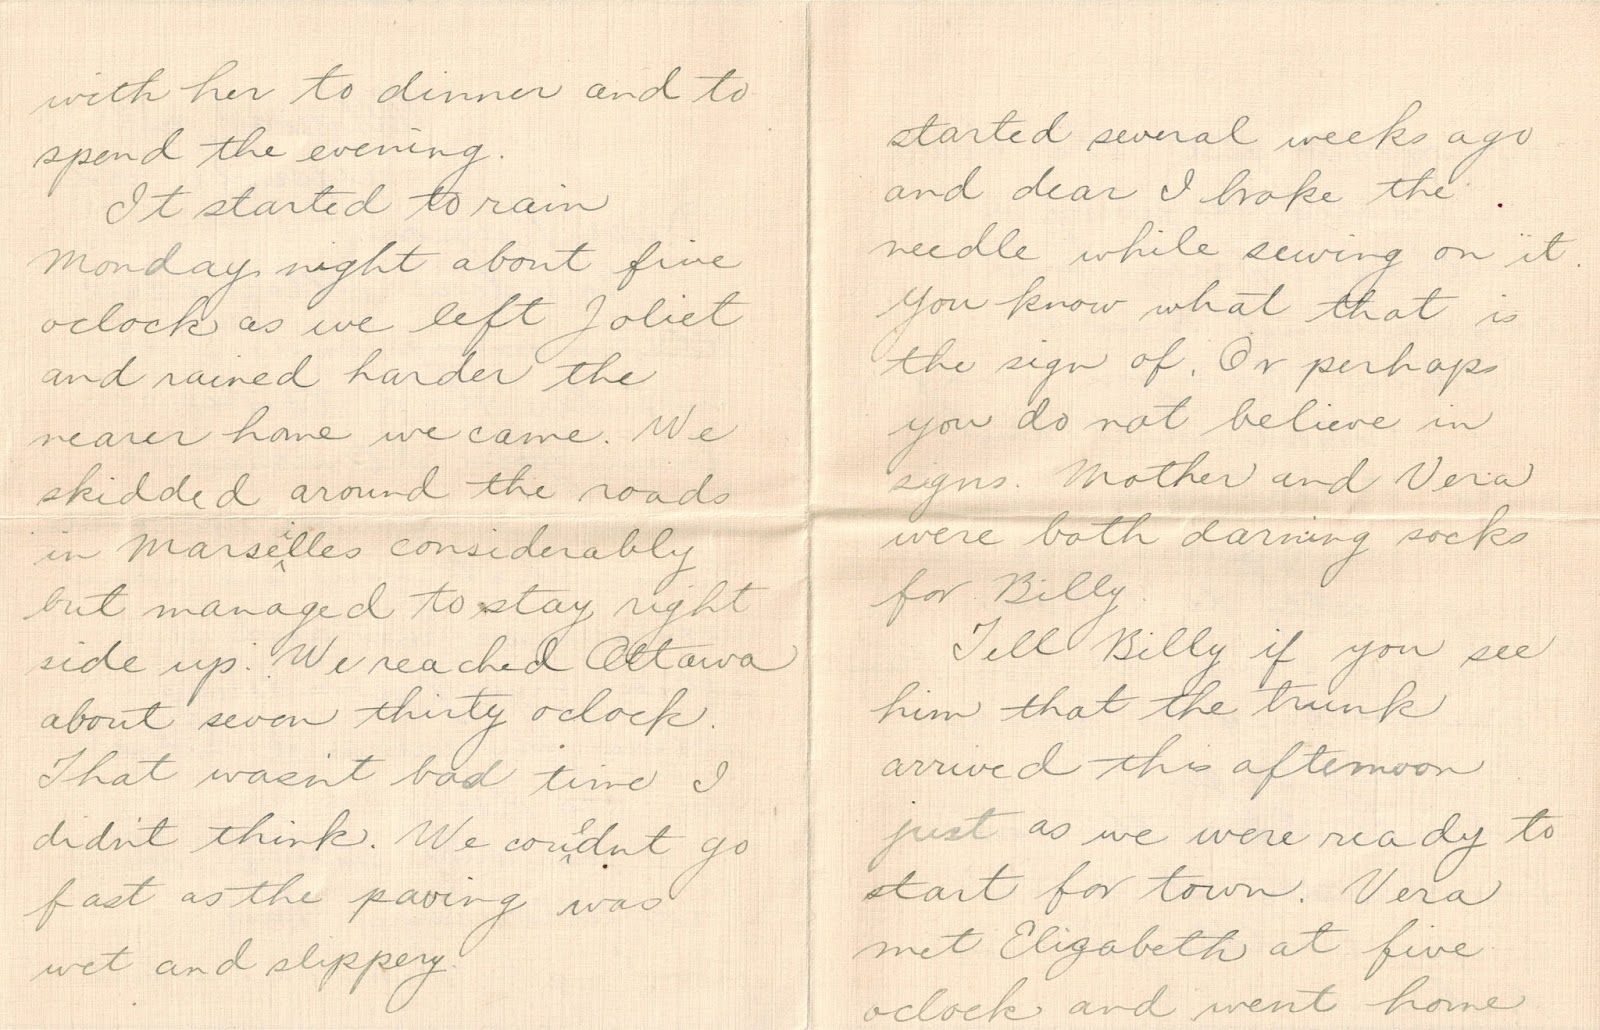 with her to dinner and to
spend the evening.
It started to rain
Monday night about five
oclock as we left Joliet
and rained harder the
nearer home we came. We
skidded around the roads
in Marseilles considerably
but managed to stay right
side up. We reached Ottawa
about seven thirty oclock.
That wasn't bad time I
didn't think. We couldnt go
fast as the paving was
wet and slippery.
started several weeks ago
and dear I broke the
needle while sewing on it.
You know what that is
the sign of. Or perhaps
you do not believe in
signs. Mother and Vera
were both darning socks
for Billy.
Tell Billy if you see
him that the trunk
arrived this afternoon
just as we were ready to
start for town. Vera
met Elizabeth at five
oclock and went home